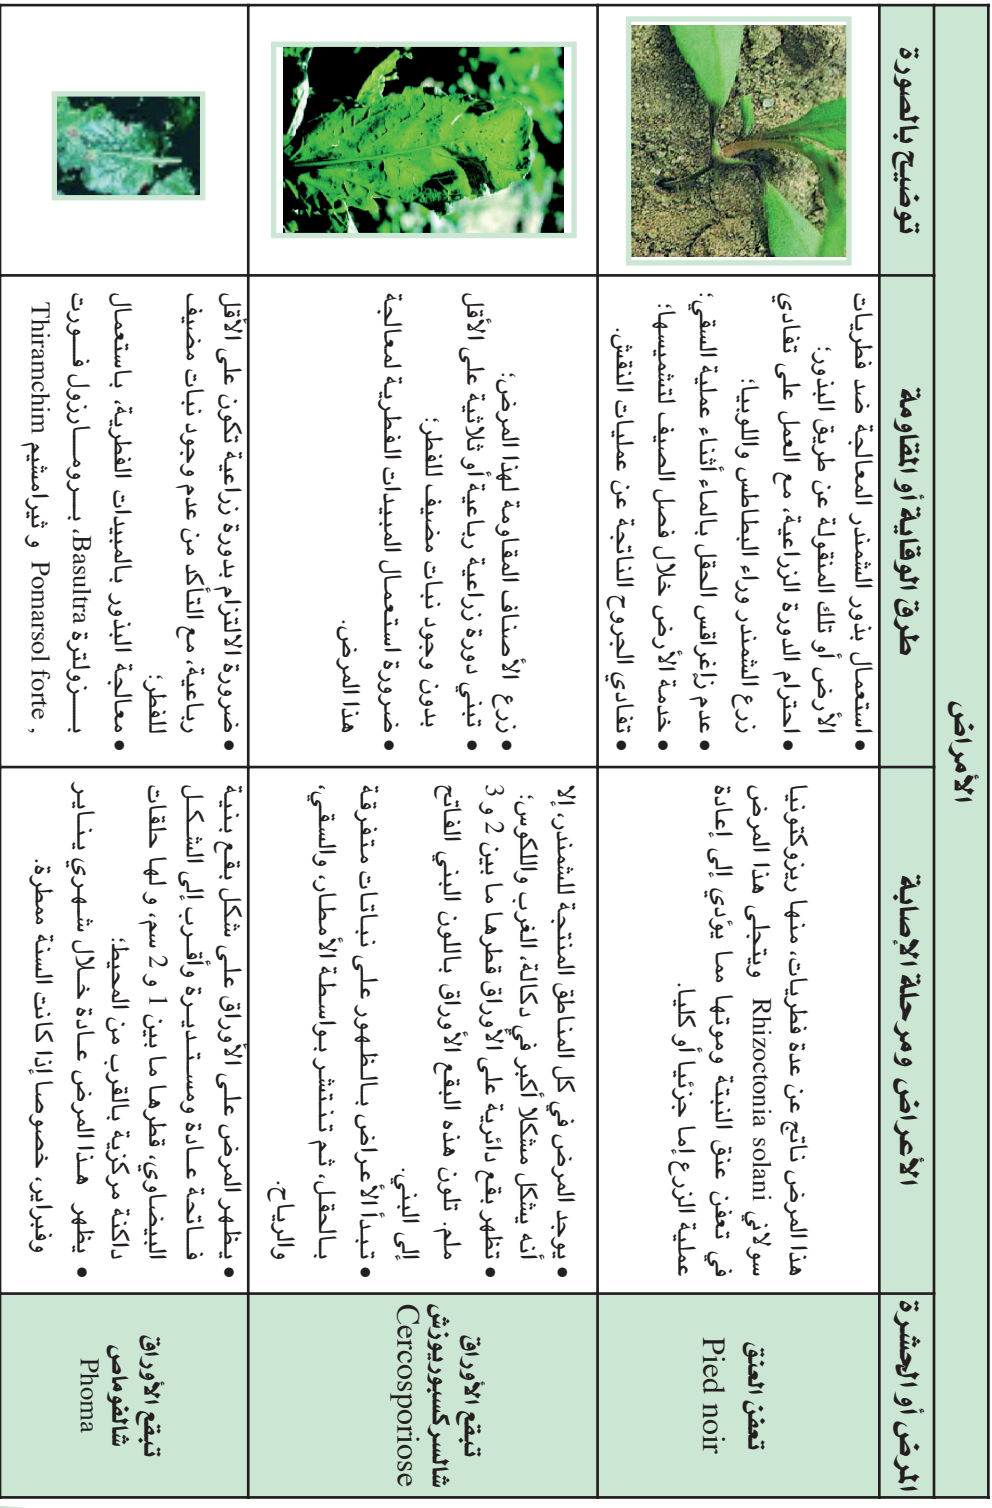 الأمراض
المرض أو الحشرة
الأعراض ومرحلة الإصابة
طرق الوقاية أو المقاومة
توضيح بالصورة
تعفن العنق
Pied noir
هذا المرض ناتج عن عدة فطريات، منها ريزوكتونيا
سولاني Rhizoctonia solani ويتجلى هذا المرض
في تعفن عنق النبتة وموتها مما يؤدي إلى إعادة
عملية الزرع إما جزئيا أو كليا.
• استعمال بذور الشمندر المعالجة ضد فطريات
الأرض أو تلك المنقولة عن طريق البذور؛
• احترام الدورة الزراعية، مع العمل على تفادي
زرع الشمندر وراء البطاطس واللوبيا؛
• عدم زاغراقس الحقل بالماء أثناء عملية السقي؛
• خدمة الأرض خلال فصل الصيف لتشميسها؛
• تفادي الجروح الناتجة عن عمليات النقش.
تبقع الأوراق
شالسركسبوريوزش
Cercosporiose
• يوجد المرض في كل المناطق المنتجة للشمندر، إلا
أنه يشكل مشكلا أكبر في دكالة، الغرب واللكوس؛
• تظهر بقع دائرية على الأوراق قطرها ما بين 2 و 3
ملم. تلون هذه البقع الأوراق باللون البني الفاتح
إلى البني.
• تبدأ الأعراض بالظهور على نباتات متفرقة
بالحقل، ثم تنتشر بواسطة الأمطار، والسقي،
والرياح.
• زرع الأصناف المقاومة لهذا المرض؛
• تبني دورة زراعية رباعية أو ثلاثية على الأقل
بدون وجود نبات مضيف للفطر؛
• ضرورة استعمال المبيدات الفطرية لمعالجة
هذا المرض.
تبقع الأوراق
شالفوماص
Phoma
• يظهر المرض على الأوراق على شكل بقع بنية
فاتحة عادة ومستديرة وأقرب إلى الشكل
البيضاوي، قطرها ما بين 1 و 2 سم، و لها حلقات
داكنة مركزية بالقرب من المحيط؛
• يظهر هذا المرض عادة خلال شهري يناير
وفبراير، خصوصا إذا كانت السنة ممطرة.
• ضرورة الالتزام بدورة زراعية تكون على الأقل
رباعية، مع التأكد من عدم وجود نبات مضيف
للفطر؛
• معالجة البذور بالمبيدات الفطرية، باستعمال
بـزولترة Basultra، بـرومـارزول فـورت
Pomarsol forte , و ثيرامشيم Thiramchim